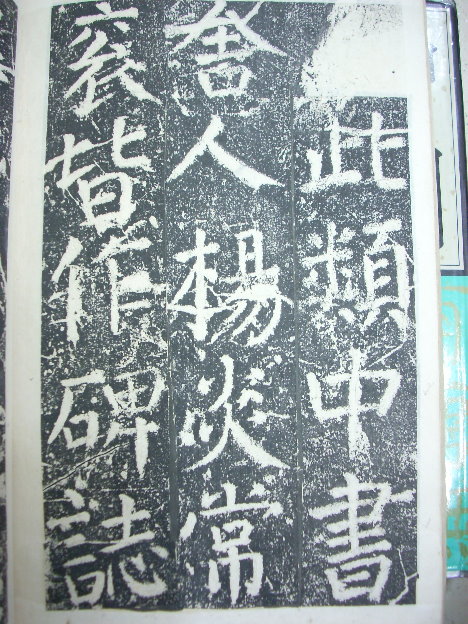 此類中書
舍人楊炎常
袞皆作碑誌